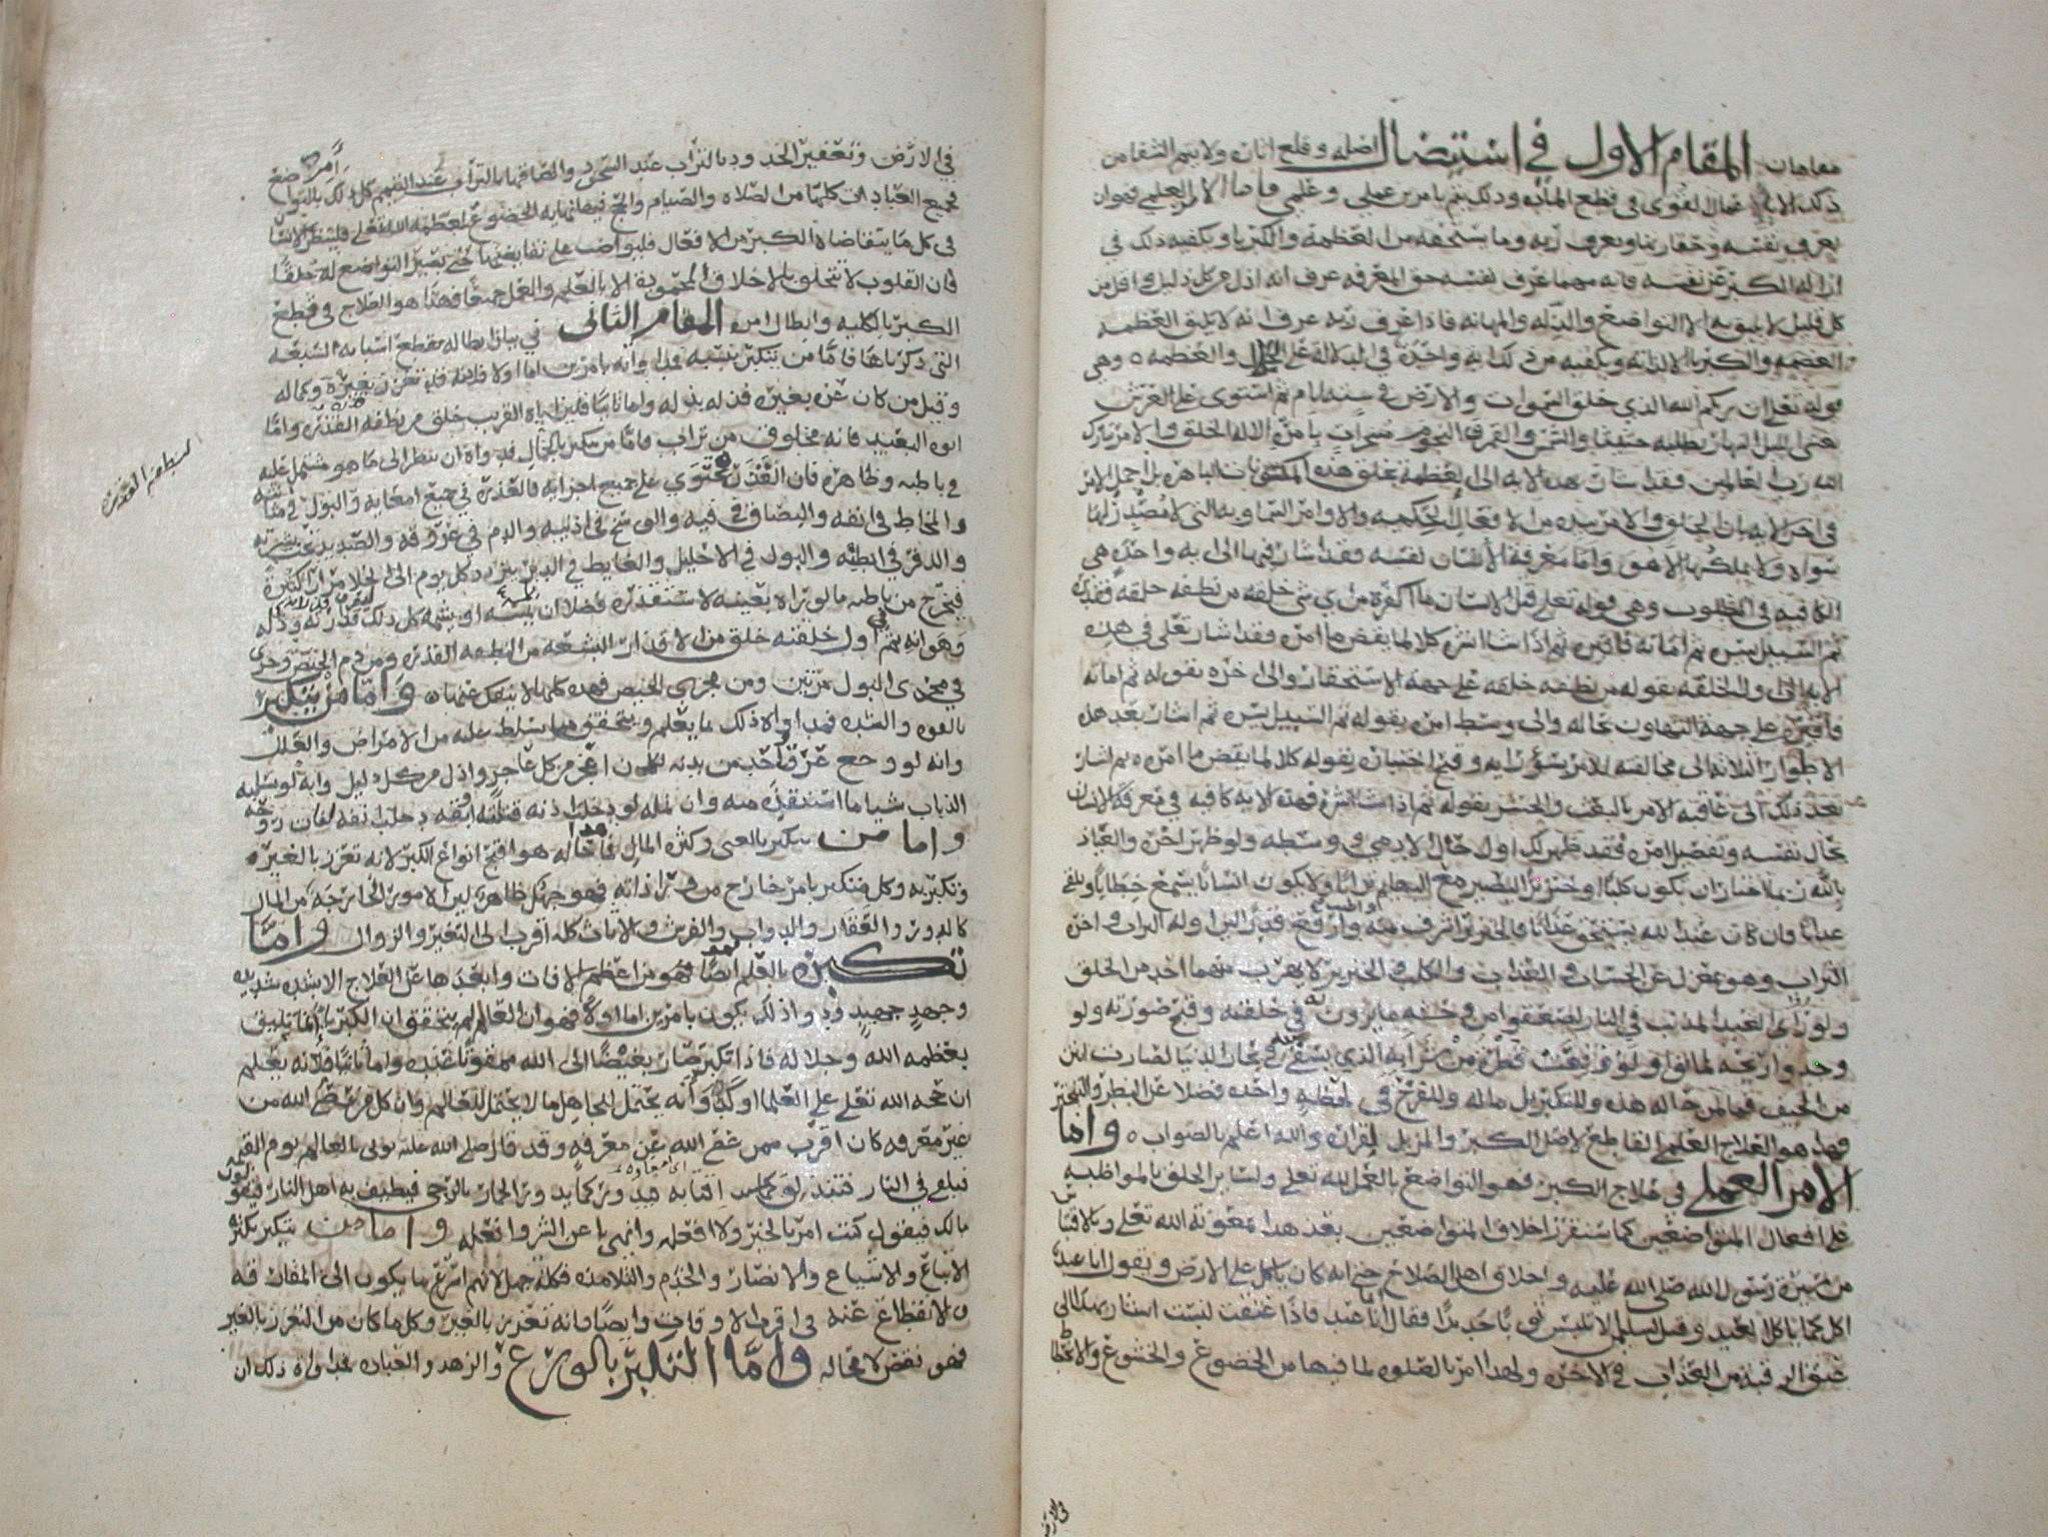 مقامان المقام الاول في استيصال اصله وقلع اثاره ولا يتم الشفا من
ذلك الا باعمال لقوى في قطع الماده وذلك يتم بامرين عملي وعلمي فاما الامر العلمي فهو ان
يعرف نفسه وحقارتها ويعرف ربه وما يستحقه من العظمه والكبريا ويكفيه ذلك في
ازاله الكبر عن نفسه فانه مهما عرف نفسه حق المعرفه عرف انه اذل من كل ذليل واقل من
كل قليل لا يليق به الا التواضع والذله والمهانه فاذا عرف ربه عرف انه لا تليق العظمه
والكبريا الا لذاته ويكفيه من ذلك ايه واحده في الدلاله على الجلال والعظمه ه وهي
قوله تعلى ان ربكم الله الذي خلق السموات والارض في سته ايام ثم استوى على العرش
يغشى الليل النهار يطلبه حثيثا والشمس والقمر والنجوم مسخرات بامره الا له الخلق والامر تبارك
الله رب العالمين فقد اشارت هذه الايه الى العظمه بخلق هذه المكونات الباهره
في اخر الايه بان الخلق والامر بيده من الافعال الحكميه والاوامر السماويه التي لا مصدر لها
سواه ولا يملكها الا هو واما معرفة الانسان لنفسه فقد اشار فيها الى ايه واحده هي
الكافيه في المطلوب وهي قوله تعلى قتل الانسان ما اكفره من اي شي خلقه من نطفه خلقه فقدره
ثم السبيل يسره ثم اماته فاقبره ثم اذا شا انشره كلا لما يقض ما امره فقد اشار تعلى في هذه
الايه الى اول خلقه بقوله من نطفه خلقه على جهة الاستحقار والى اخره بقوله ثم اماته
فاقبره على جهة التهاون بحاله والى وسط امره بقوله ثم السبيل يسره ثم اشار بعد هذه
الاطوار الثلاثه الى مخالفته للامر بسؤ رايه وقبح اختياره بقوله كلا لما يقض ما امره ه ثم اشار
بعد ذلك الى عاقبه الامر بالبعث والحشر بقوله ثم اذا شا انشره فهذه الايه كافيه في معرفة الانسان
بحال نفسه وتفصيل امره فقد ظهر لك اول حال الادمي ووسطه ولو ظهر اخره والعياذ
بالله ربما اختار ان يكون كلبا او خنزيرا ليصير مع البهايم ترابا ولا يكون انسانا يسمع خطابا ويلقى
عذابا وان كان عند الله يستحق عذابا فالخنزير اشرف منه واطيب وارفع
التراب وهو بمعزل عن الحساب والعذاب والكلب والخنزير لا يهرب منهما احد من الخلق
ولو راى العبد المذنب في النار لصعقوا من وحشه ما يرون في خلقته وقبح صورته ولو
وجدوا ريحه لماتوا ولو وقعت قطره من شرابه الذي يسقى في بحار الدنيا لصارت انتن
من الجيف فما لمن حاله هذه وللتكبر بل ماله وللفرح في لحظه واحده فضلا عن البطر والتبختر
فهذا هو العلاج العلمي القاطع لاصل الكبر والمزيل لقراره والله اعلم بالصواب ه واما
الامر العملي في علاج الكبر فهو التواضع بالعمل لله تعلى ولساير الخلق بالمواظبه
على افعال المتواضعين كما سنقرر اخلاق المتواضعين بعد هذا بمعونة الله تعلى وبالاقتباس
من سيره رسول الله صلى الله عليه واخلاق اهل الصلاح حتى انه كان ياكل على الارض ويقول انا عبد
اكل كما ياكل العبد وقيل لسلمان الا تلبس ثوبا جديدا فقال انا عبد فاذا عتقت لبست اشار بهذا الى
عتق الرقبة من العذاب في الاخره ولهذا امر بالصلوه لما فيها من الخضوع والخشوع والانحطاط
في الارض
في الارض وتعفير الخدود بالتراب عند السجود والصاقها بالتراب عند
فجميع العبادات كلها من الصلاه والصيام والحج فيها نهايه الخضوع لعظمة الله تعلى فلينظر الانسان
في كل ما يتقاضاه الكبر من الافعال فليواضب على نقايضها حتى يصير التواضع له خلقا
فان القلوب لا تتخلق بالاخلاق المحموده الا بالعلم والعمل جميعا فهذا هو العلاج في قطع
الكبر بالكليه وابطال امره المقام الثاني في بيان ابطاله بقطع اسبابه السبعه
التي ذكرناها فاما من يتكبر بنسبه فدواوه بامرين اما اولا فلانه قد تعزز بغيره وكماله
وقيل من كان عزه بغيره فذله بذله واما ثانيا فلان اباه القريب خلق من نطفه قذره واما
ابوه البعيد فانه مخلوق من تراب فاما من يتكبر بالجمال فدواه ان ينظر الى ما هو مشتمل عليه
في باطنه وظاهره فان القذر محتوي على جميع اجزايه فالعذره في جميع امعايه والبول في مثانته
والمخاط في انفه والبصاق في فيه والوسخ في اذنيه والدم في عروقه والصديد تحت بشرته
والدفر في ابطيه والبول في الاحليل والغايط في الدبر يتردد كل يوم الى الخلا
فيخرج من باطنه ما لو راه بعينه لاستقذره فضلا ان يمسه او يشمه كل ذلك
وهو انه في اول خلقته خلق من الاقذار البشعه من النطفه القذره ومن دم الحيض وجرى
في مجرى البول مرتين ومن مجرى الحيض فهذه كلها لا ينفك عنها ه واما من يتكبر
بالقوه والشده فدواه ذلك بما يعلم ويتحقق مما يسلط عليه من الامراض والعلل
وانه لو وجع عرق واحد من بدنه لكان اعجز من كل عاجز واذل من كل ذليل وانه لو سلبه
الذباب شيا ما استنقذه منه وان نمله لو دخلت اذنه قتلته او بقه دخلت انفه لفات روحه
واما من يتكبر بالغنى وكثره المال فما حاله هذا هو اقبح انواع الكبر لانه تعزز بالغيره
وتكبر به وكل متكبر بامر خارج من ذاته فهو جهل ظاهر لان الامور الخارجه من المال
كالدور والعقار والدواب والفرش والاثاث كله اقرب الى التغير والزوال واما
تكبره بالعلم ايضا فهو من اعظم الافات وابعدها عن العلاج الا بشده شديده
وجهد جهيد ودوا ذلك يكون بامرين اما اولا فهو ان العالم لم يتحقق ان الكبريا انما تليق
بعظمه الله وجلاله فاذا تكبر صار بغيضا الى الله ممقوتا عنده واما ثانيا فلانه يعلم
ان حجه الله تعلى على العلما اوكد وانه يحتمل للجاهل ما لا يحتمل للعالم وان كل من عصى الله من
غير معرفه كان اقرب ممن عصى الله عن معرفه وقد قال صلى الله عليه يوتى بالعالم يوم القيمه
فيلقى في النار فتندلق اقتابه فيدور كما يدور الحمار بالرحى فيطيف به اهل النار فيقولون
مالك فيقول كنت امر بالخير ولا افعله وانهى عن الشر وافعله واما من يتكبر بكثره
الاتباع والاشياع والانصار والخدم والتلامذه فكله جهل لانهم اسرع ما يكون الى المفارقه
والانقطاع عنه في اقرب الاوقات وايضا فانه تعزز بالغير وكل ما كان من التعزز بالغير
فهو نقص لا محاله واما التكبر بالورع والزهد والعباده فدواه ذلك ان
النطفه القذره